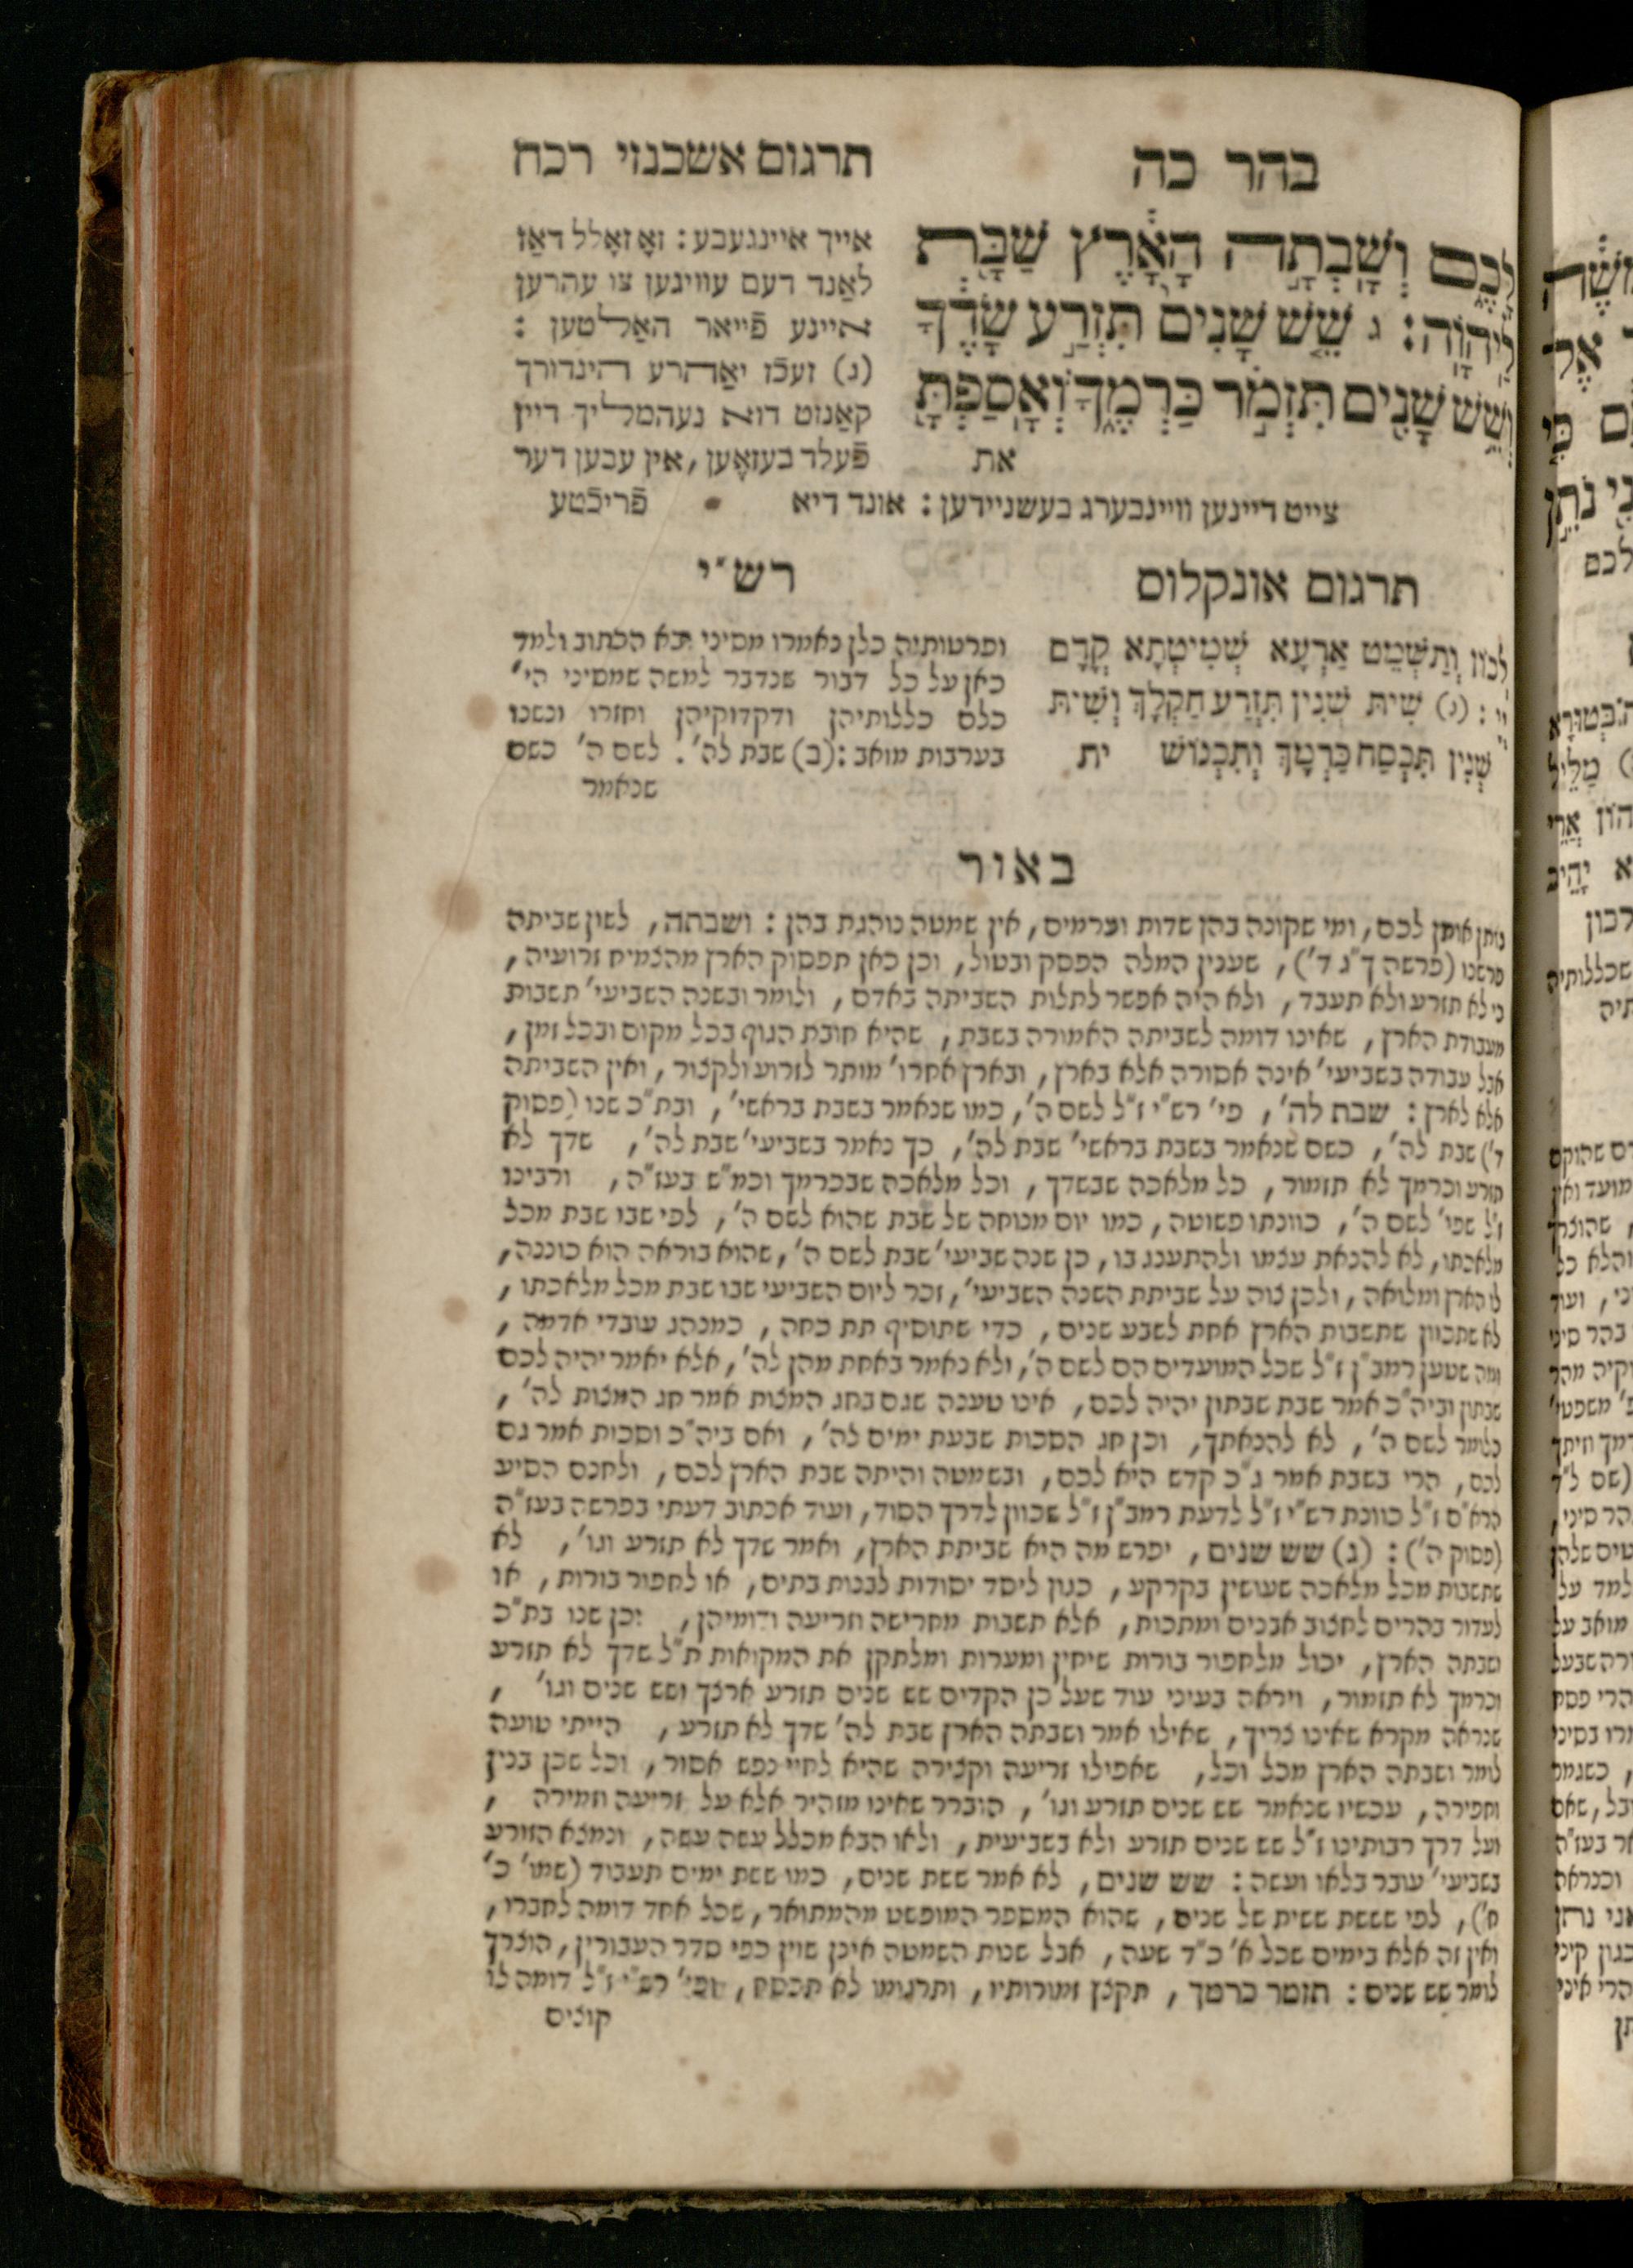 בהר כה
תרגום אשכנזי רכח
לָכֶ֑ם וְשָׁבְתָ֣ה הָאָ֔רֶץ שַׁבָּ֖ת
לַיהוָֽה׃ ג שֵׁ֤שׁ שָׁנִים֙ תִּזְרַ֣ע שָׂדֶ֔ךָ
וְשֵׁ֥שׁ שָׁנִ֖ים תִּזְמֹ֣ר כַּרְמֶ֑ךָ וְאָסַפְתָּ֖
את
אייך איינגעבע: זאָ זאָלל דאַז
לאַנד דעם עוויגען צו עהרען
איינע פֿייאר האַלטען :
(ג) זעכֿז יאַהרע הינדורך
קאַנזט דוא נעהמליך דיין
פֿעלד בעזאָען, אין עבען דער
צייט דיינען וויינבערג בעשניידען: אונד דיא פֿריכֿטע
תרגום אונקלוס
לְכוֹן וְתַשְׁמֵט אַרְעָא שְׁמִיטְתָא קֳדָם
יי : (ג) שִׁית שְׁנִין תִּזְרַע חַקְלָךְ וְשִׁית
שְׁנִין תִּכְסַח כַּרְמָךְ וְתִכְנוֹשׁ ית
רש״י
ופרטותיה כלן נאמרו מסיני ובא הכתוב ולמד
כאן על כל דבור שנדבר למשה שמסיני הי׳
כלם כללותיהן ודקדוקיהן וחזרו ונשנו
בערבות מואב: (ב) שבת לה׳. לשם ה׳ כשם
שנאמר
באור
נותן אותן לכם, ומי שקונה בהן שדות וכרמים, אין שמטה נוהגת בהן: ושבתה, לשון שביתה
פרשנו (פרשה ך״ג ד׳), שענין המלה הפסק ובטול, וכן כאן תפסוק הארץ מהצמיח זרועיה,
כי לא תזרע ולא תעבד, ולא היה אפשר לתלות השביתה באדם, ולומר ובשנה השביעי׳ תשבות
מעבודת הארץ, שאינו דומה לשביתה האמורה בשבת, שהיא חובת הגוף בכל מקום ובכל זמן,
אבל עבודה בשביעי׳ אינה אסורה אלא בארץ, ובארץ אחרו׳ מותר לזרוע ולקצור, ואין השביתה
אלא לארץ: שבת לה׳, פי׳ רש״י ז״ל לשם ה׳, כמו שנאמר בשבת בראשי׳, ובת״כ שנו (פסוק
ד׳) שבת לה׳, כשם שנאמר בשבת בראשי׳ שבת לה׳, כך נאמר בשביעי׳ שבת לה׳, שדך לא
תזרע וכרמך לא תזמור, כל מלאכה שבשדך, וכל מלאכה שבכרמך וכמ״ש בעז״ה, ורבינו
ז״ל שפי׳ לשם ה׳, כוונתו פשוטה, כמו יום מנוחה של שבת שהוא לשם ה׳, לפי שבו שבת מכל
מלאכתו, לא להנאת עצמו ולהתענג בו, כן שנה שביעי׳ שבת לשם ה׳, שהוא בוראה הוא כוננה,
לו הארץ ומלואה, ולכן צוה על שביתת השנה השביעי׳, זכר ליום השביעי שבו שבת מכל מלאכתו,
לא שתכוון שתשבות הארץ אחת לשבע שנים, כדי שתוסיף תת כחה, כמנהג עובדי אדמה,
ומה שטען רמב״ן ז״ל שכל המועדים הם לשם ה׳, ולא נאמר באחת מהן לה׳, אלא יאמר יהיה לכם
שבתון וביה״כ אמר שבת שבתון יהיה לכם, אינו טענה שגם בחג המצות אמר חג המצות לה׳,
כלומר לשם ה׳, לא להנאתך, וכן חג הסכות שבעת ימים לה׳, ואם ביה״כ וסכות אמר גם
לכם, הרי בשבת אמר ג״כ קדש היא לכם, ובשמטה והיתה שבת הארץ לכם, ולחנם הסיע
הרא״ם ז״ל כוונת רש״י ז״ל לדעת רמב״ן ז״ל שכוון לדרך הסוד, ועוד אכתוב דעתי בפרשה בעז״ה
(פסוק ה׳): (ג) שש שנים, יפרש מה היא שביתת הארץ, ואמר שדך לא תזרע וגו׳, לא
שתשבות מכל מלאכה שעושין בקרקע, כגון ליסד יסודות לבנות בתים, או לחפור בורות, או
לעדור בהרים לחצוב אבנים ומתכות, אלא תשבות מחרישה וזריעה ודומיהן, וכן שנו בת״כ
ושבתה הארץ, יכול מלחפור בורות שיחין ומערות ומלתקן את המקואות ת״ל שדך לא תזרע
וכרמך לא תזמור, ויראה בעיני עוד שעל כן הקדים שש שנים תזרע ארצך ושש שנים וגו׳,
שנראה מקרא שאינו צריך, שאילו אמר ושבתה הארץ שבת לה׳ שדך לא תזרע, הייתי טועה
לומר ושבתה הארץ מכל וכל, שאפילו זריעה וקצירה שהיא לחיי נפש אסור, וכל שכן בנין
וחפירה, עכשיו שנאמר שש שנים תזרע וגו׳, הוברר שאינו מזהיר אלא על זריעה וזמירה,
ועל דרך רבותינו ז״ל שש שנים תזרע ולא בשביעית, ולאו הבא מכלל עשה עשה, ונמצא הזורע
בשביעי׳ עובר בלאו ועשה: שש שנים, לא אמר ששת שנים, כמו ששת ימים תעבוד (שמו׳ כ׳
ח׳), לפי שששת ששית של שנים, שהוא המספר המופשט מהמתואר, שכל אחד דומה לחברו,
ואין זה אלא בימים שכל א׳ כ״ד שעה, אבל שנות השמטה אינן שוין כפי סדר העבורין, הוצרך
לומר שש שנים: תזמר כרמך, תקצץ זמורותיו, ותרגומו לא תכסח, ופי׳ רש״י ז״ל דומה לו
קוצים